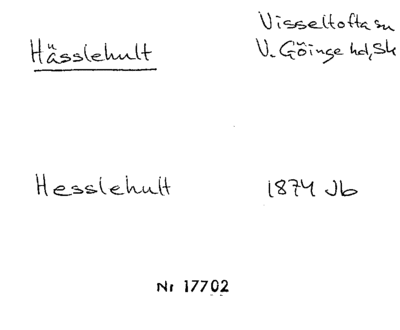 Visseltofta sn
Hässlehult V. Göinge hd, Sk
Hesslehult 1874 Jb
Nr 17702